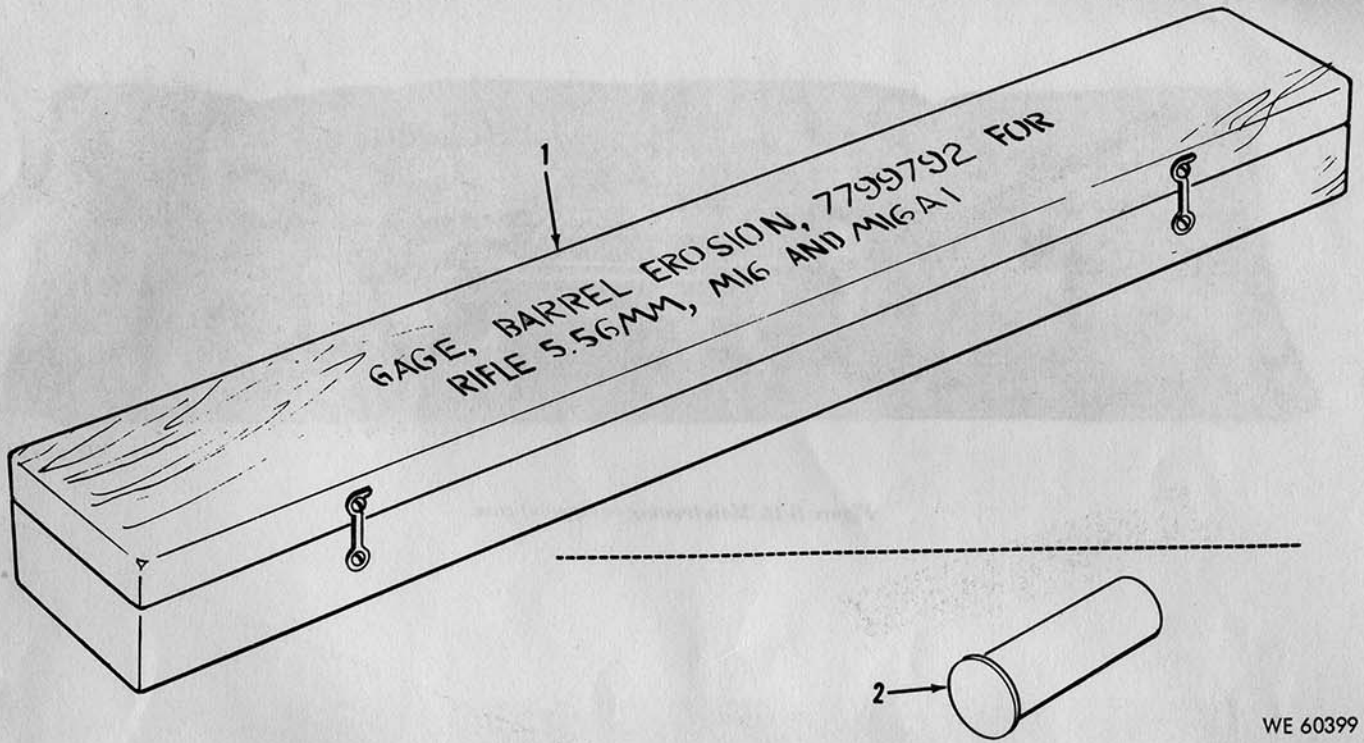 1
GAGE, BARREL EROSION, 7799792 FOR
RIFLE 5.56MM, M16 AND M16A1
2
WE 60399